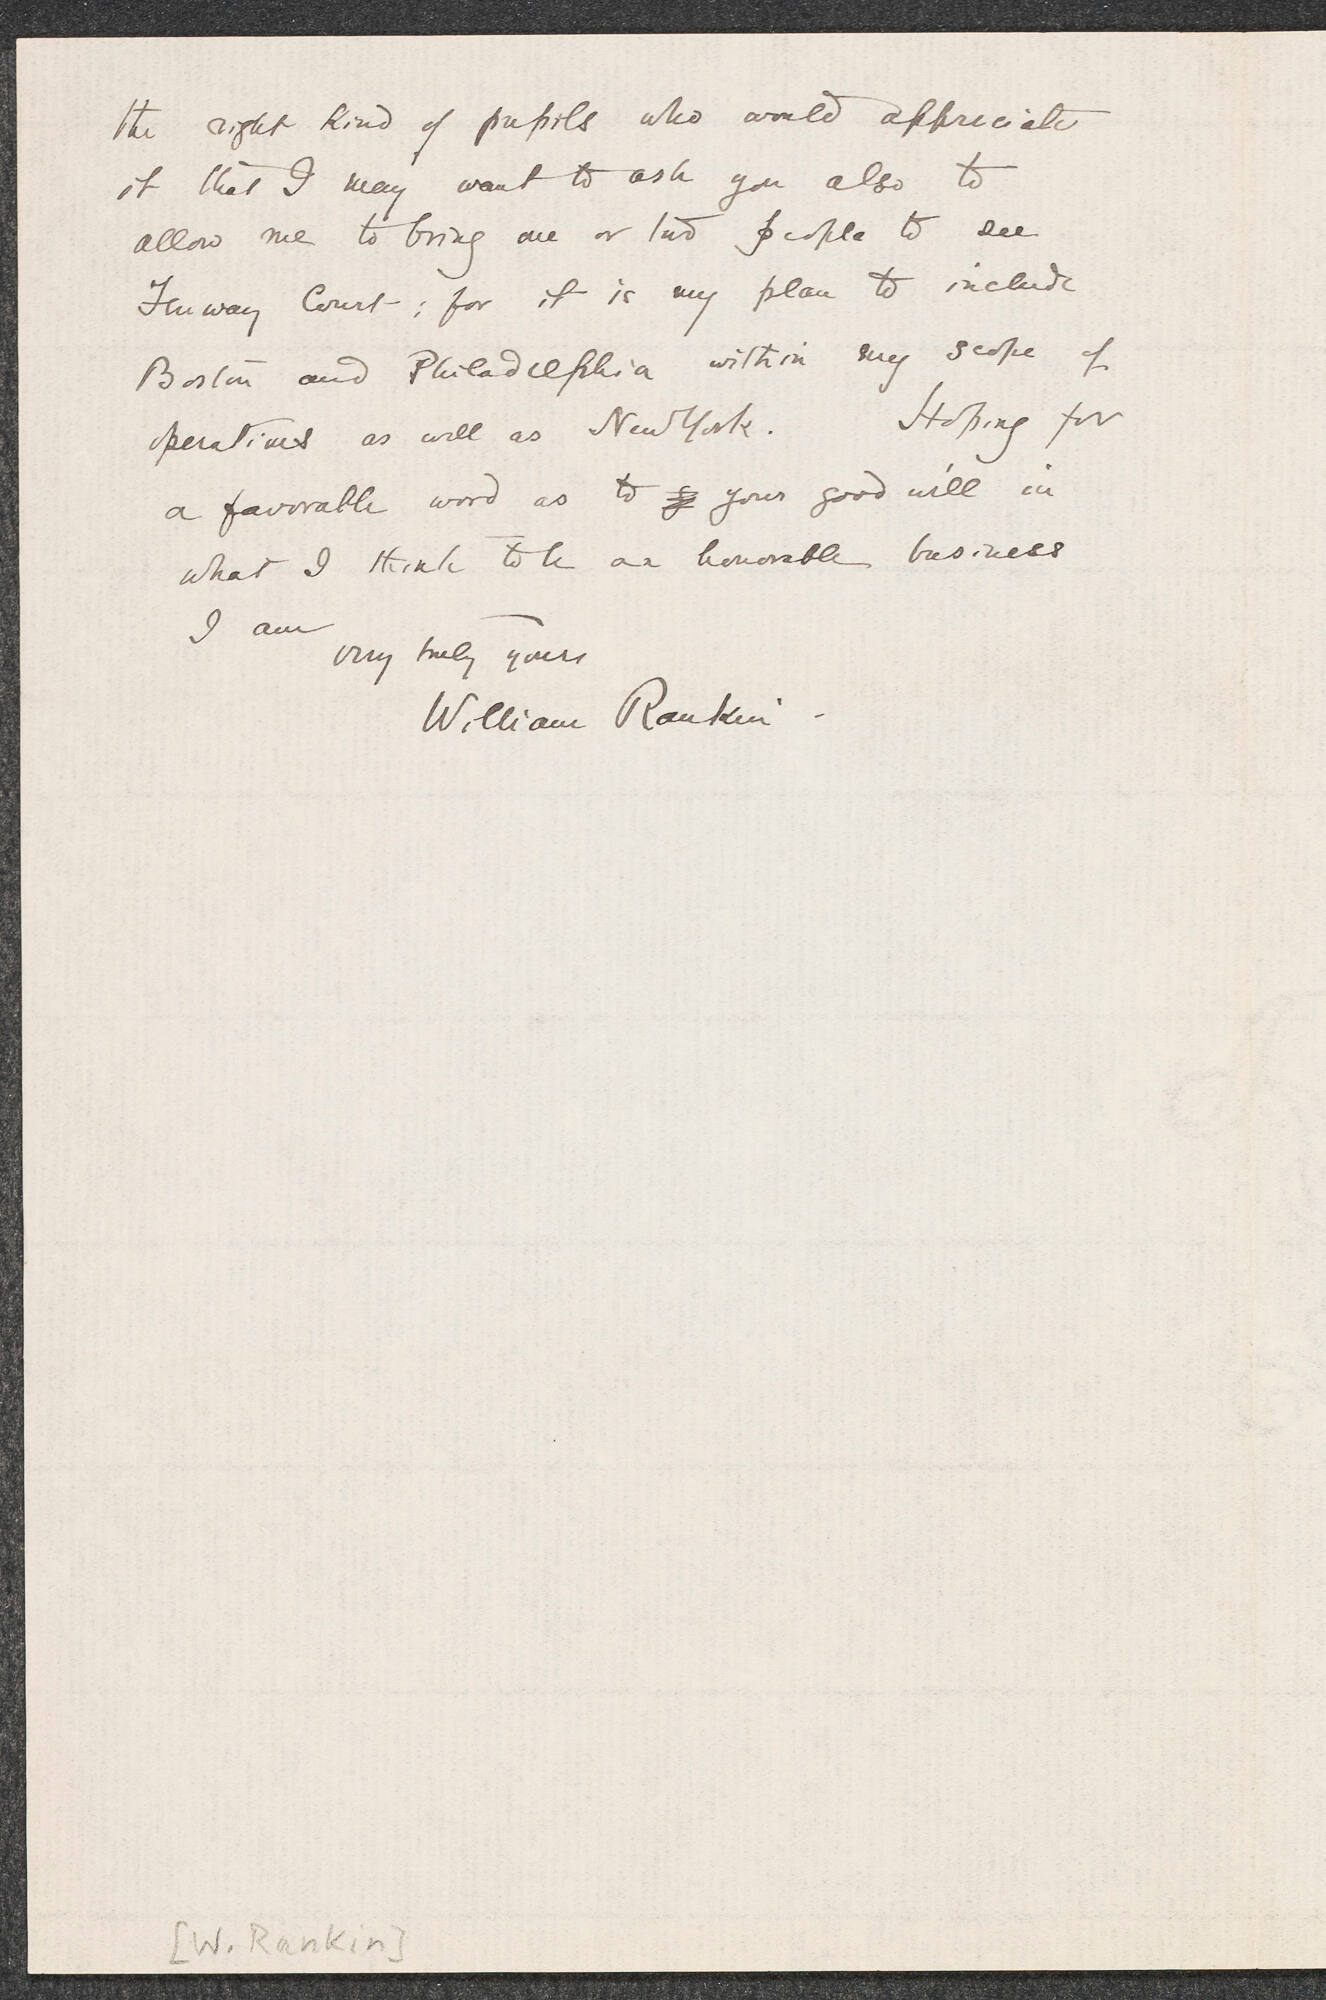 the right kind of pupils who would appreciate
it that I may want to ask you also to
allow me to bring one or two people to see
Fenway Court; for it is my plan to include
Boston and Philadelphia within my scope of
operations as well as New York. Hoping for
a favorable word as to your good will in
what I think to be an honorable business
I am
very truly yours
William Rankin -
[W. Rankin]